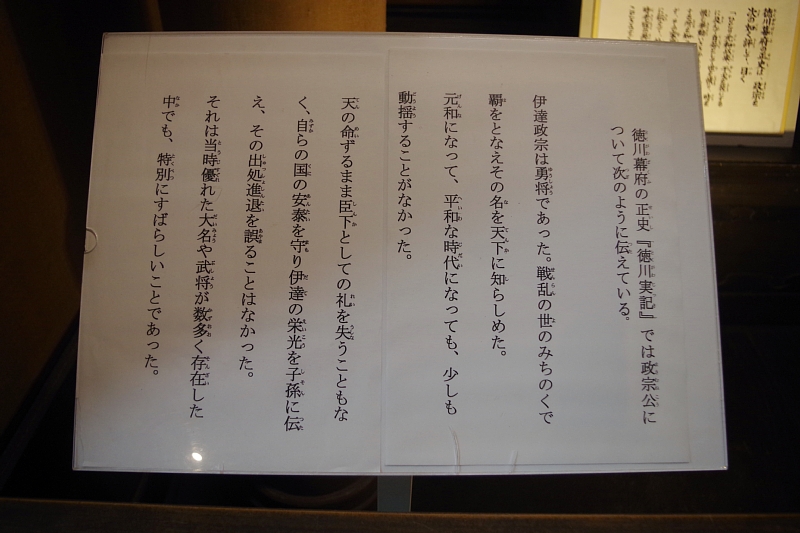 徳川幕府の正史『徳川実記』では政宗公に
ついて次のように伝えている。
伊達政宗は勇将であった。戦乱の世のみちのくで
覇をとなえその名を天下に知らしめた。
元和になって、平和な時代になっても、少しも
動揺することがなかった。
天の命ずるまま臣下としての礼を失うこともな
く、自らの国の安泰を守り伊達の栄光を子孫に伝
え、その出処進退を誤ることはなかった。
それは当時優れた大名や武将が数多く存在した
中でも、特別にすばらしいことであった。
徳川幕府の正史は、政宗を
次の如く評して、曰く